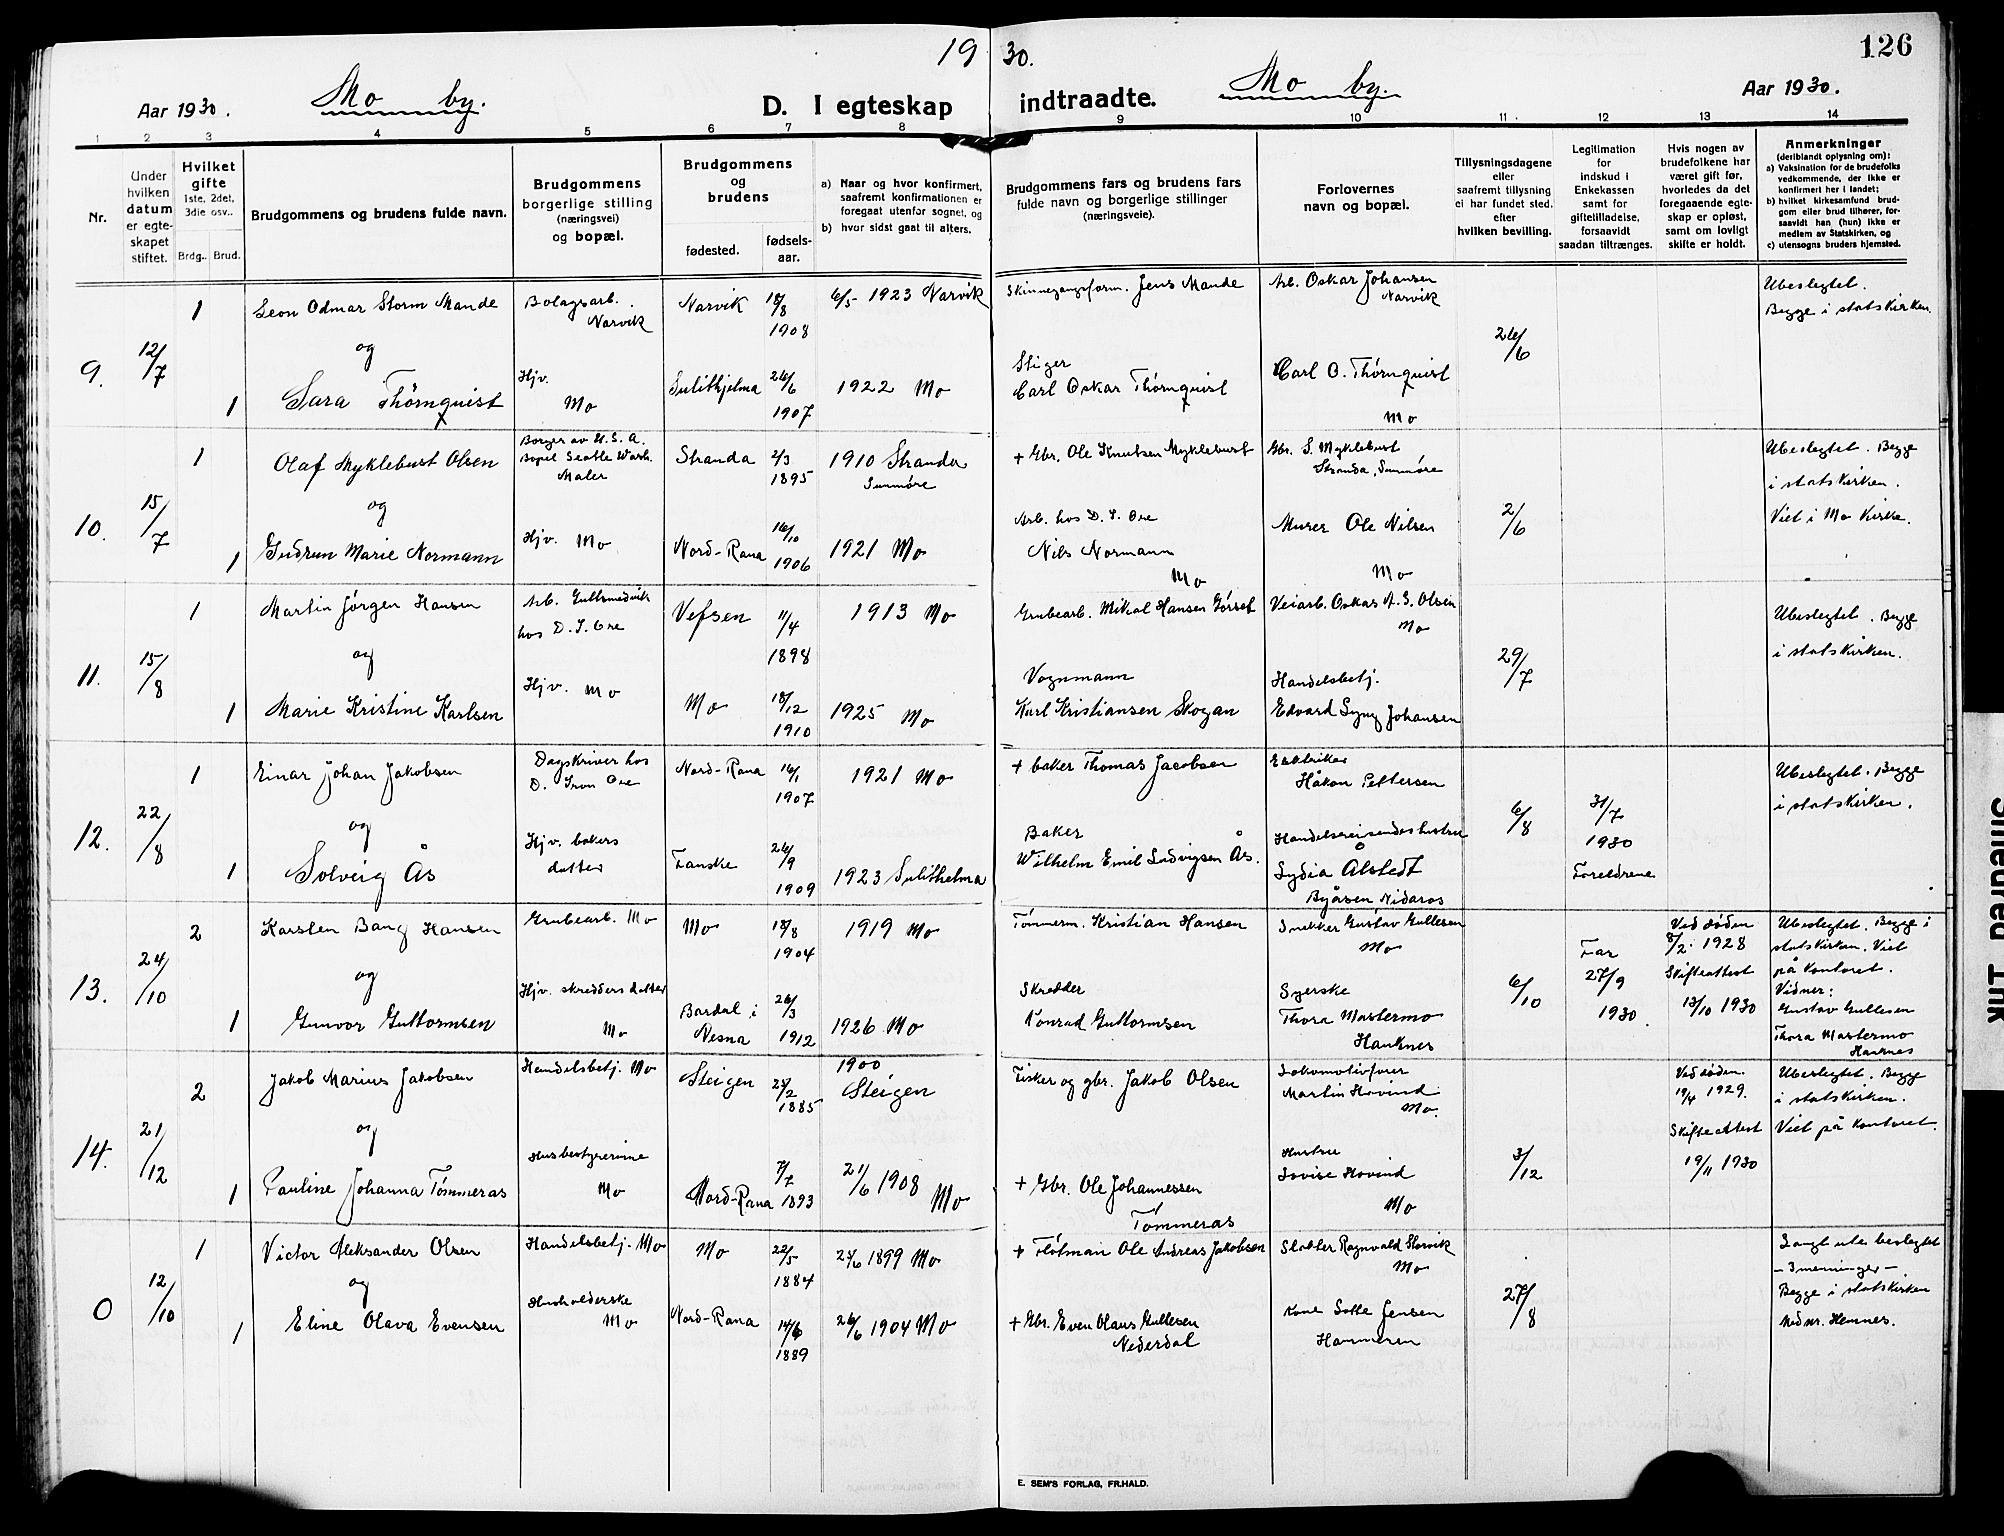 19 30.
126
Aar 1930. Mo by. D. I egteskap
indtraadte. Mo by. Aar 1930.
1 2 3 4 5 6 7 8
9 10 11 12 13 14
Nr.
Under
hvilken
datum
er egte-
skapet
stiftet.
Hvilket
gifte
1ste, 2det,
3die osv..
Brdg.. Brud.
Brudgommens og brudens fulde navn.
Brudgommens
borgerlige stilling
(næringsvei)
og bopæl.
Brudgommens
og
brudens
fødested.
fødsels-
aar.
a) Naar og hvor konfirmert,
saafremt konfirmationen er
foregaat utenfor sognet, og
b) hvor sidst gaat til alters.
Brudgommens fars og brudens fars
fulde navn og borgerlige stillinger
(næringsveie).
Forlovernes
navn og bopæl.
Tillysningsdagene
eller
saafremt tillysning
ei har fundet sted.
efter
hvilken bevilling.
Legitimation
for
indskud i
Enkekassen
samt for
giftetilladelse,
forsaavidt
saadan tiltrænges.
Hvis nogen av
brudefolkene har
været gift før,
hvorledes da det
foregaaende egte-
skap er opløst,
samt om lovligt
skifte er holdt.
Anmerkninger
(deriblandt oplysning om):
a) Vaksination for de brudefolks
vedkommende, der ikke er
konfirmert her i landet;
b) hvilket kirkesamfund brud-
gom eller brud tilhører, for-
saavidt han (hun) ikke er
medlem av Statskirken, og
c) utensogns bruders hjemsted.
9.
12/7
1
Leon Odmar Storm Mande
og
1
Sara Thørnquist
Bolagsarb.
Narvik
Hjv.
Mo
Narvik
18/8
1908
Sulithjelma
26/6
1907
6/5 1923 Narvik
1922 Mo
Skinnegangsform. Jens Mande
Stiger
Carl Oskar Thørnquist
Arb. Oskar Johansen
Narvik
Carl O. Thørnquist
Mo
26/6
Ubeslegtet.
Begge i statskirken.
10.
15/7
1
Olaf Myklebust Olsen
og
1
Gudrun Marie Normann
Borger av U.S.A.
Bopel Seatle Wash.
Maler
Hjv. Mo
Stranda
2/3
1895
Nord-Rana
16/10
1906
1910 Stranda
Sunmøre
1921 Mo
+ Gbr. Ole Knutsen Myklebust
Arb. hos D. I. Ore
Nils Normann
Mo
Gbr. S. Myklebust
Stranda, Sunmøre
Murer Ole Nilsen
Mo
2/6
Ubeslegtet. Begge
i statskirken.
Viet i Mo kirke.
11.
15/8
1
Martin Jørgen Hansen
og
1
Marie Kristine Karlsen
Arb. Gullsmedvik
hos D. I. Ore
Hjv. Mo
Vefsen
11/4
1898
Mo
18/12
1910
1913 Mo
1925 Mo
Grubearb. Mikal Hansen Gørset
Vognmann
Karl Kristiansen Skogan
Veiarb. Oskar A. S. Olsen
Mo
Handelsbetj.
Edvard Lyng Johansen
29/7
Ubeslegtet. Begge
i statskirken.
12.
22/8
1
Einar Johan Jakobsen
og
1
Solveig Ås
Dagskriver hos
D. Iron Ore
Hjv. bakers
datter
Nord-Rana
16/1
1907
Fauske
26/9
1909
1921 Mo
1923 Sulithelma
+ baker Thomas Jacobsen
Baker
Wilhelm Emil Ludvigsen Ås.
Elektriker
Håkon Pettersen
Handelsreisendes hustru
Lydia Ålstedt
Byåsen, Nidaros
6/8
31/7
1930
Foreldrene
Ubeslegtet. Begge
i statskirken.
13.
24/10
2
Karsten Bang Hansen
og
1
Gunvor Guttormsen
Grubearb. Mo
Hjv. skredders datter
Mo
Mo
18/8
1904
Bardal i
Nesna
26/3
1912
1919 Mo
1926 Mo
Tømmerm. Kristian Hansen
Skredder
Konrad Guttormsen
Snekker Gustav Gullesen
Mo
Syerske
Thora Mastermo
Hauknes
6/10
Far
27/9
1930.
Ved døden
8/2. 1928
Skifteattest
13/10 1930
Ubeslegtet. Begge i
statskirken. Viet
på kontoret.
Vidner:
Gustav Gullesen
Thora Mastermo
Hauknes
14.
21/12
2
Jakob Marius Jakobsen
og
1
Pauline Johanna Tømmeras
Handelsbetj. Mo
Husbestyrerinne
Mo
Steigen
25/2
1885
Nord-Rana
7/7
1893
1900
Steigen
21/6 1908 Mo
Fisker og gbr. Jakob Olsen
+ Gbr. Ole Johannessen
Tømmeras
Lokomotivfører
Martin Hovind
Mo.
Hustru
Lovise Hovind
Mo
3/12
Ved døden.
19/4 1929.
Skifteattest
19/11 1930
Ubeslegtet. Begge
i statskirken.
Viet på kontoret.
0
12/10
1
Victor Aleksander Olsen
og
1
Eline Olava Evensen
Handelsbetj. Mo
Husholderske
Mo
Mo
22/5
1884
Nord-Rana
14/6
1889
25/6 1899 Mo
26/6 1904 Mo
+ Fløtman Ole Andreas Jakobsen
+ Gbr. Even Olaus Gullesen
Nederdal
Slakter Ragnvald Storvik
Mo
Kone Lotte Jensen
Hammeren
27/8
Langt ute beslegtet
- 3menninger -
Begge i statskirken
Nednr. Hemnes.
E. SEM'S FORLAG, FR.HALD.